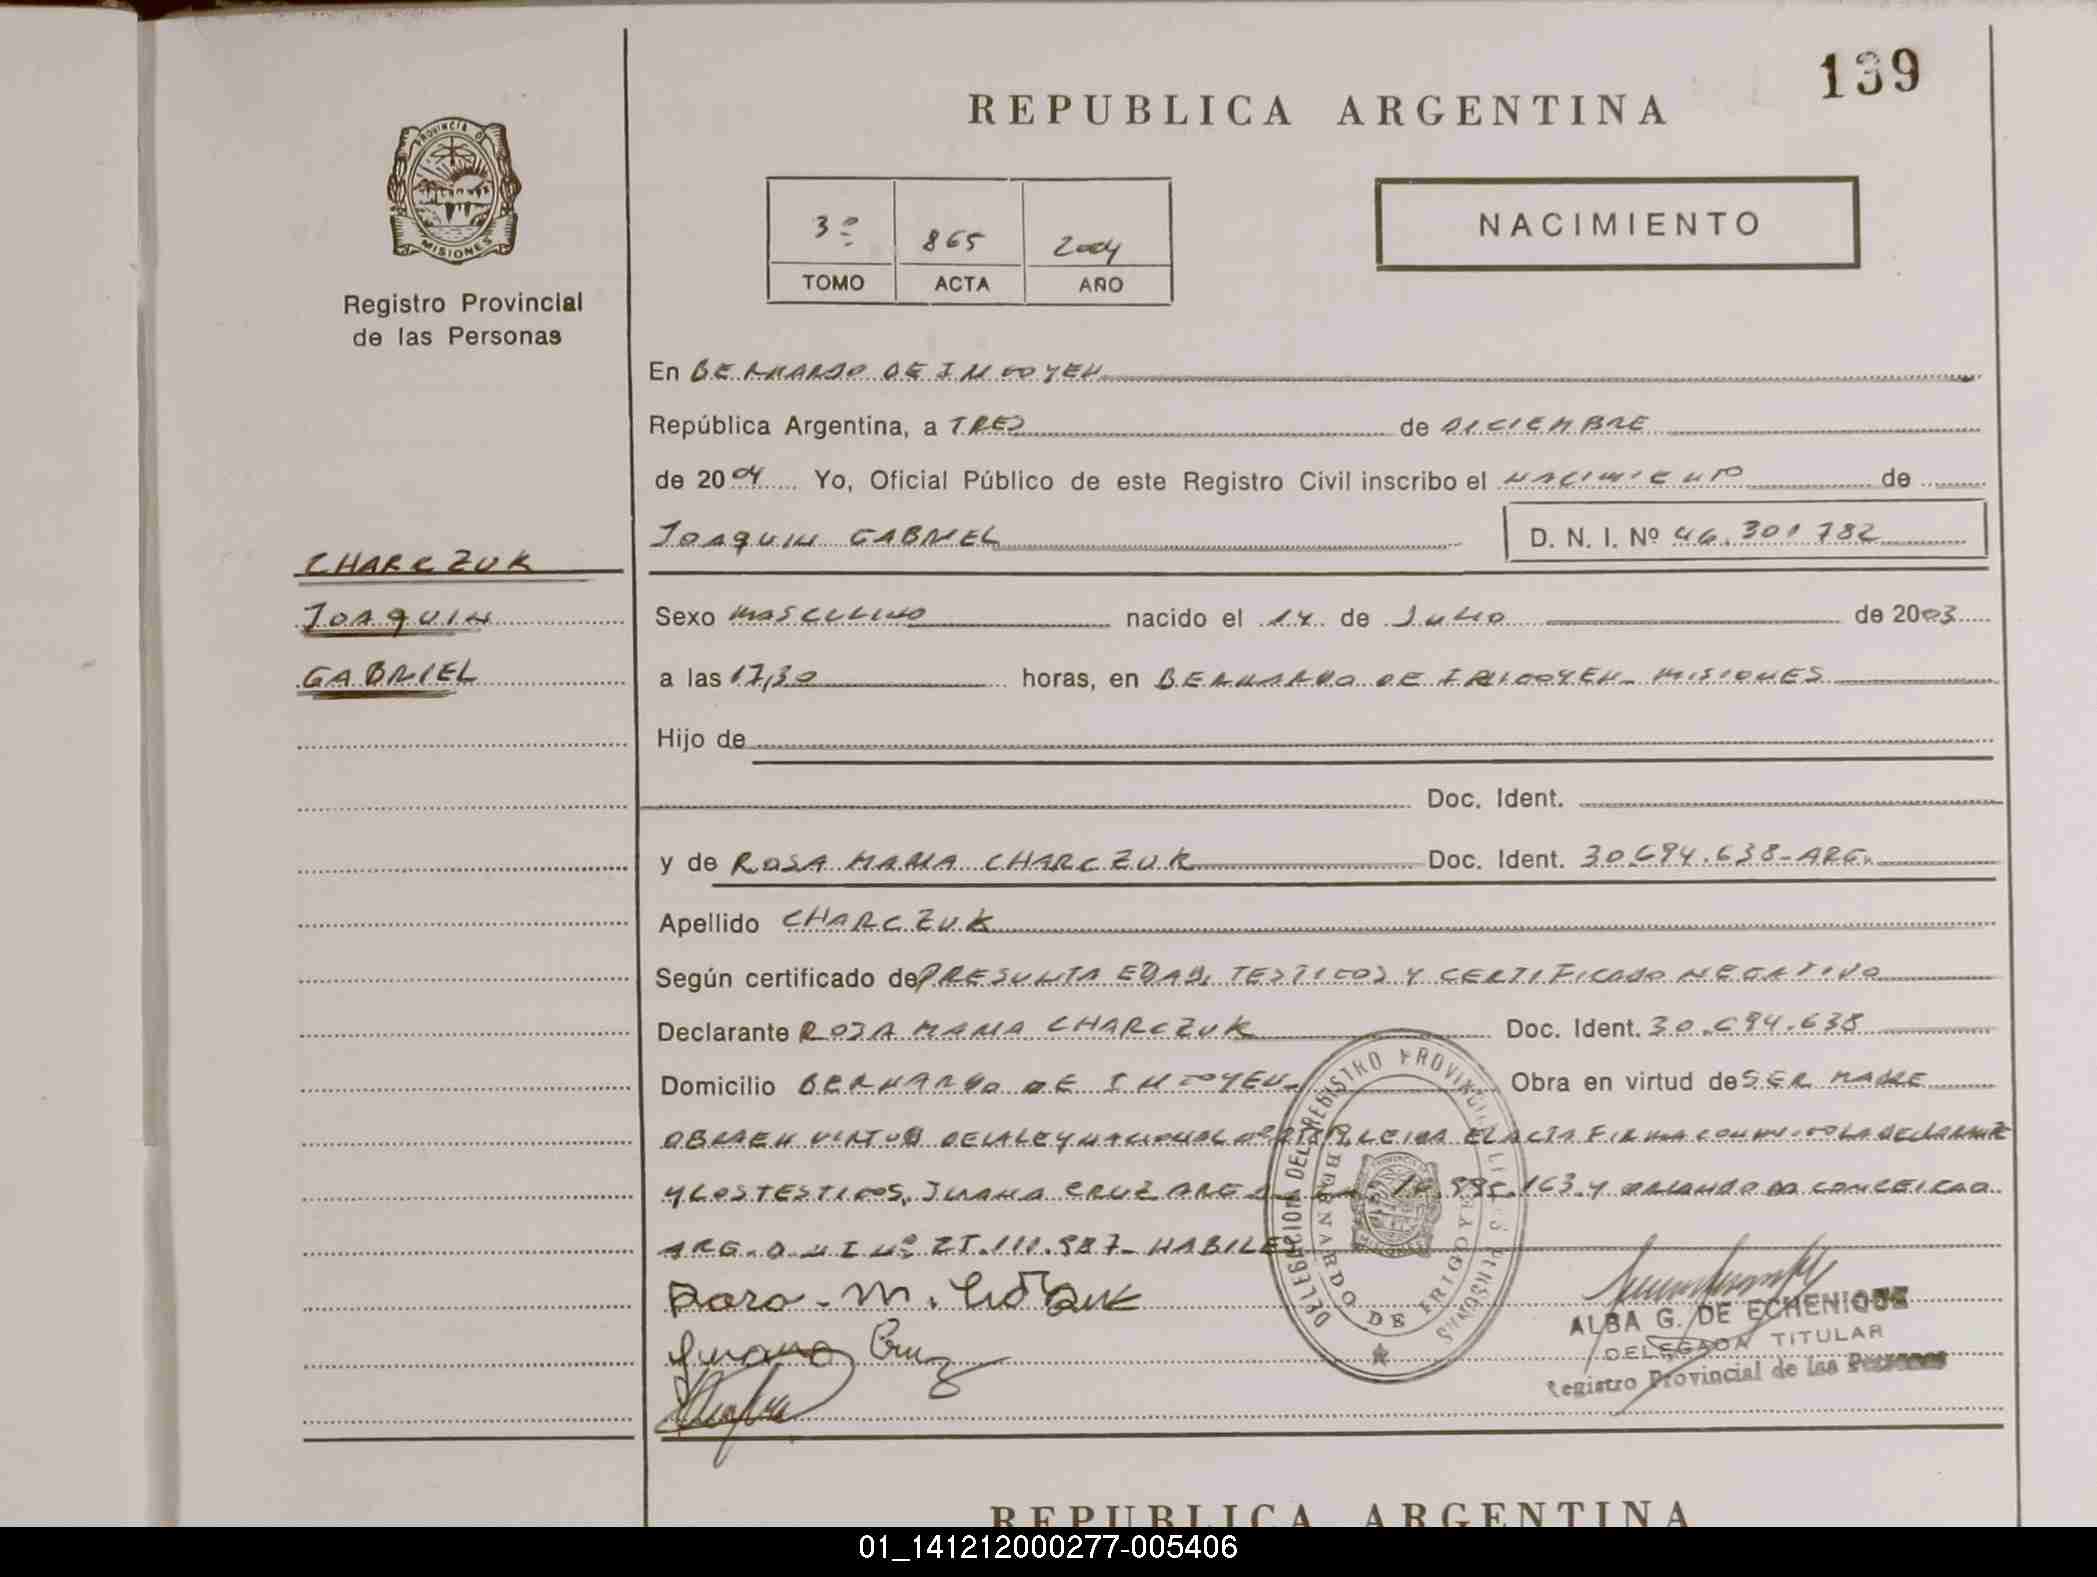 139
REPUBLICA ARGENTINA
PROVINCIA DE
MISIONES
Registro Provincial
de las Personas
3º 865 2004
TOMO ACTA AÑO
NACIMIENTO
En BERNARDO DE IRIGOYEN
República Argentina, a TRES de DICIEMBRE
de 2004 Yo, Oficial Público de este Registro Civil inscribo el NACIMIENTO de
JOAQUIN GABRIEL D. N. I. Nº 46.301.782
CHARCZUK
JOAQUIN
GABRIEL
Sexo MASCULINO nacido el 14 de JULIO de 2003
a las 17,30 horas, en BERNARDO DE IRIGOYEN - MISIONES
Hijo de
Doc. Ident.
y de ROSA MARIA CHARCZUK Doc. Ident. 30.694.638-ARG.
Apellido CHARCZUK
Según certificado de PRESUNTA EDAD, TESTIGOS Y CERTIFICADO NEGATIVO
Declarante ROSA MARIA CHARCZUK Doc. Ident. 30.694.638
Domicilio BERNARDO DE IRIGOYEN - Obra en virtud de SER MADRE
OBRA EN VIRTUD DE LA LEY NACIONAL LEIDA EL ACTA FIRMA CONMIGO LA DECLARANTE
Y LOS TESTIGOS, JUANA CRUZ ARG 163 Y ORLANDO DA CONCEICAO
ARG. D N I Nº 25.111.987- HABILES
Juana Cruz
DELEGACION DEL REGISTRO PROVINCIAL DE LAS PERSONAS
BERNARDO DE IRIGOYEN
ALBA G. DE ECHENIQUE
DELEGADA TITULAR
Registro Provincial de las Personas
REPUBLICA ARGENTINA
01_141212000277-005406